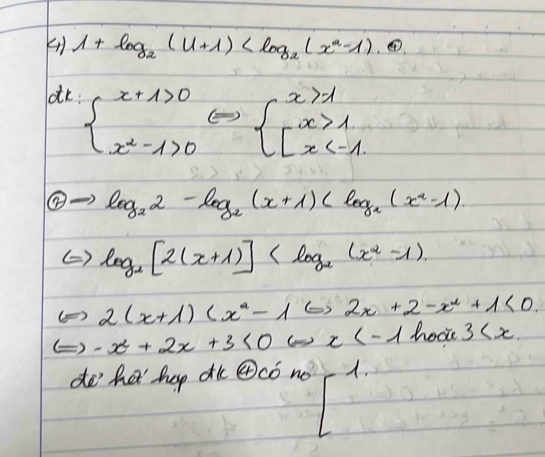 4) 1 + log₂ (x+1) < log₂ (x²-1). ⊕.
đk: { x+1>0 ; x²-1>0 <=> { x>-1 ; [ x>1. ; x<-1.
⊕ -> log₂ 2 - log₂ (x+1) < log₂ (x²-1).
<=> log₂ [2(x+1)] < log₂ (x²-1).
<=> 2(x+1) < x²-1 <=> 2x+2-x²+1<0.
<=> -x²+2x+3<0 <=> x<-1 hoặc 3<x.
kết hợp đk ⊕ có no [ 1.